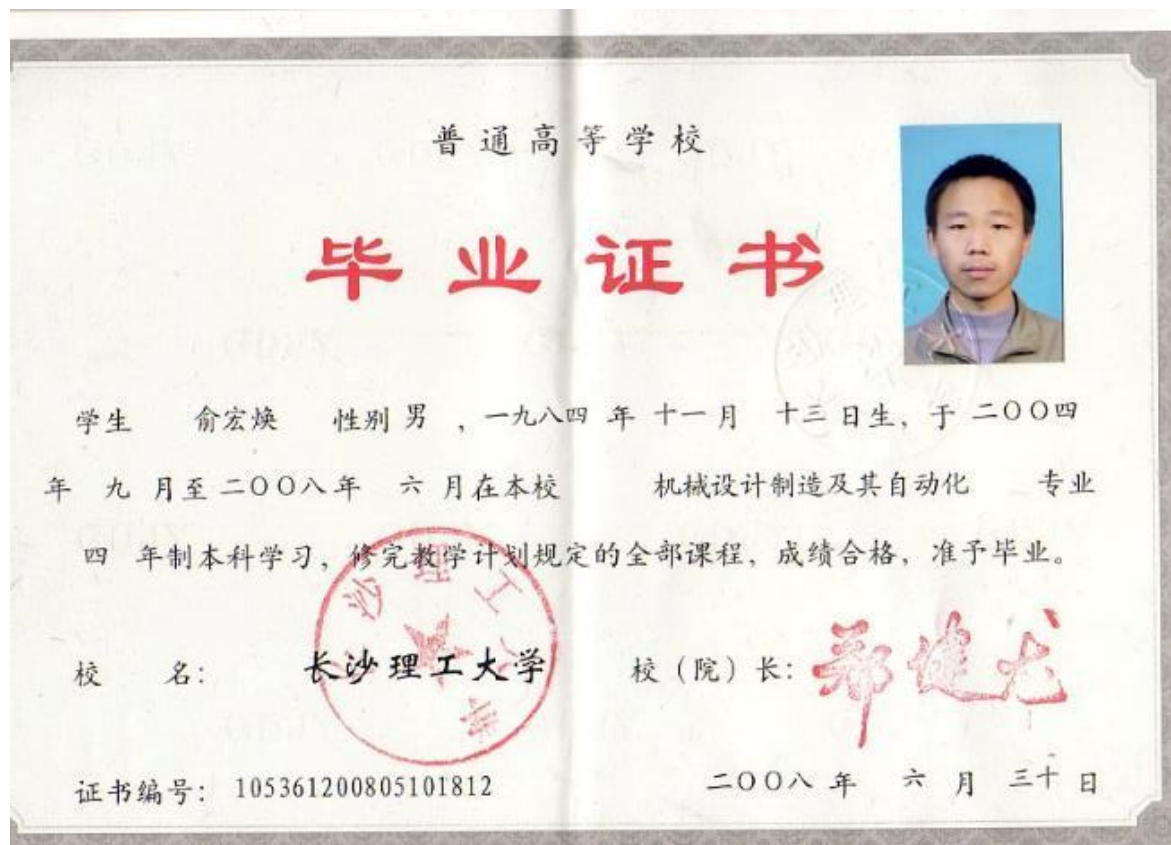 普通高等学校
毕业证书
学生 俞宏焕 性别 男 ，一九八四 年 十一月 十三 日生，于 二〇〇四
年 九 月至 二〇〇八年 六 月在本校 机械设计制造及其自动化 专业
四 年制本科学习，修完教学计划规定的全部课程，成绩合格，准予毕业。
校 名： 长沙理工大学 校（院）长： 郑健龙
证书编号： 105361200805101812 二〇〇八 年 六 月 三十 日